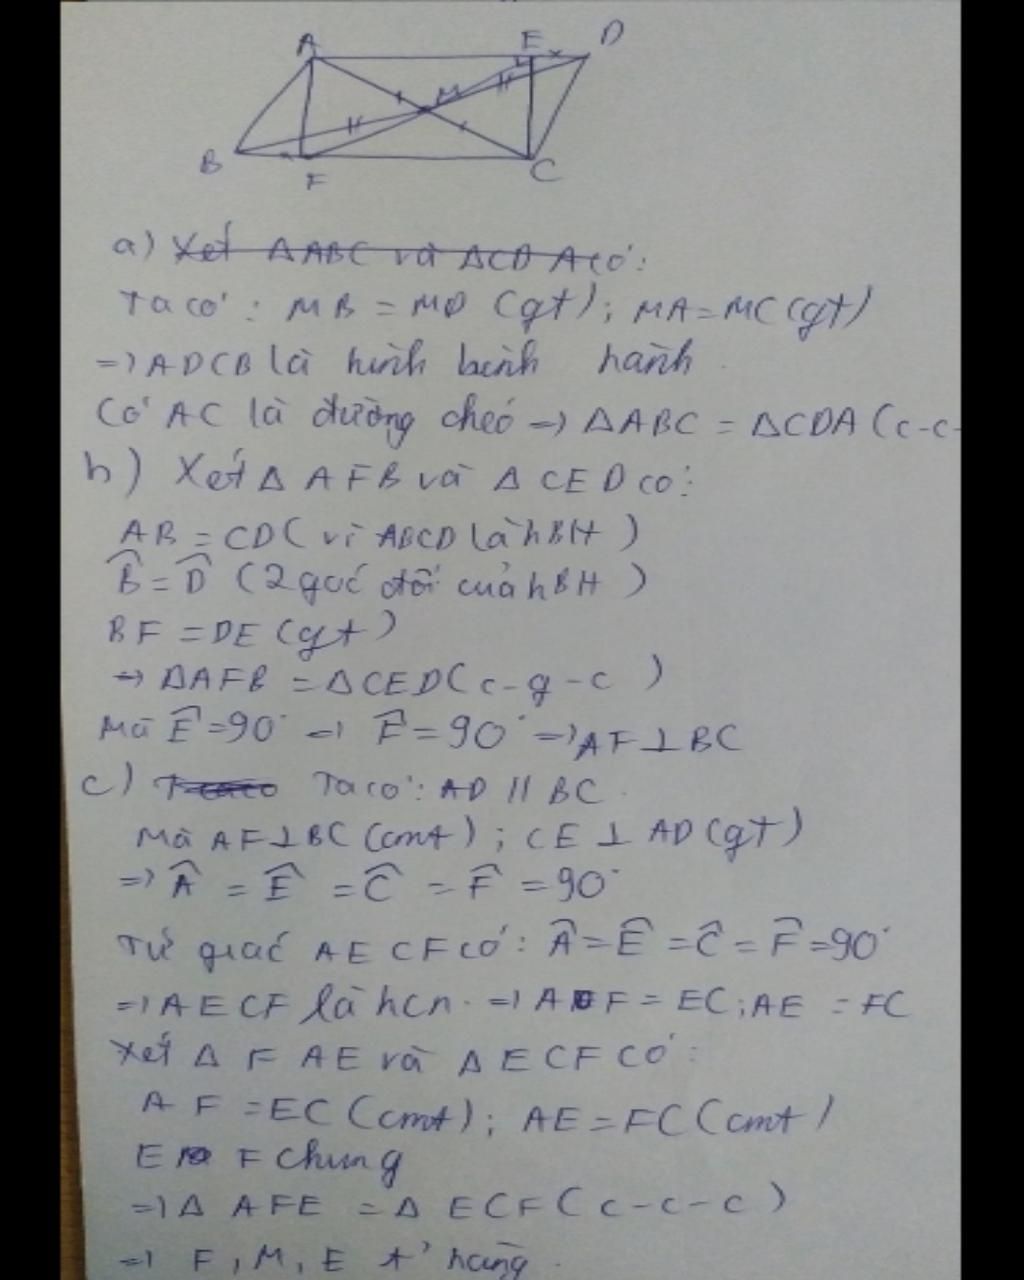 A E D
M
B F C
a) Xét ΔABC và ΔCDA có:
Ta có: MB = MD (gt); MA = MC (gt)
=> ADCB là hình bình hành.
Có AC là đường chéo => ΔABC = ΔCDA (c-c-
b) Xét Δ AFB và Δ CED có:
AB = CD (vì ABCD là hBH)
B̂ = D̂ (2 góc đối của hBH)
BF = DE (gt)
=> ΔAFB = ΔCED (c-g-c)
Mà Ê = 90° => F̂ = 90° => AF ⊥ BC
c) Ta có: AD // BC.
Mà AF ⊥ BC (cmt); CE ⊥ AD (gt)
=> Â = Ê = Ĉ = F̂ = 90°
Tứ giác AECF có: Â = Ê = Ĉ = F̂ = 90°
=> AECF là hcn. => AF = EC; AE = FC
Xét Δ FAE và Δ ECF có:
AF = EC (cmt); AE = FC (cmt)
E F chung
=> Δ AFE = Δ ECF (c-c-c)
=> F, M, E t' hàng.